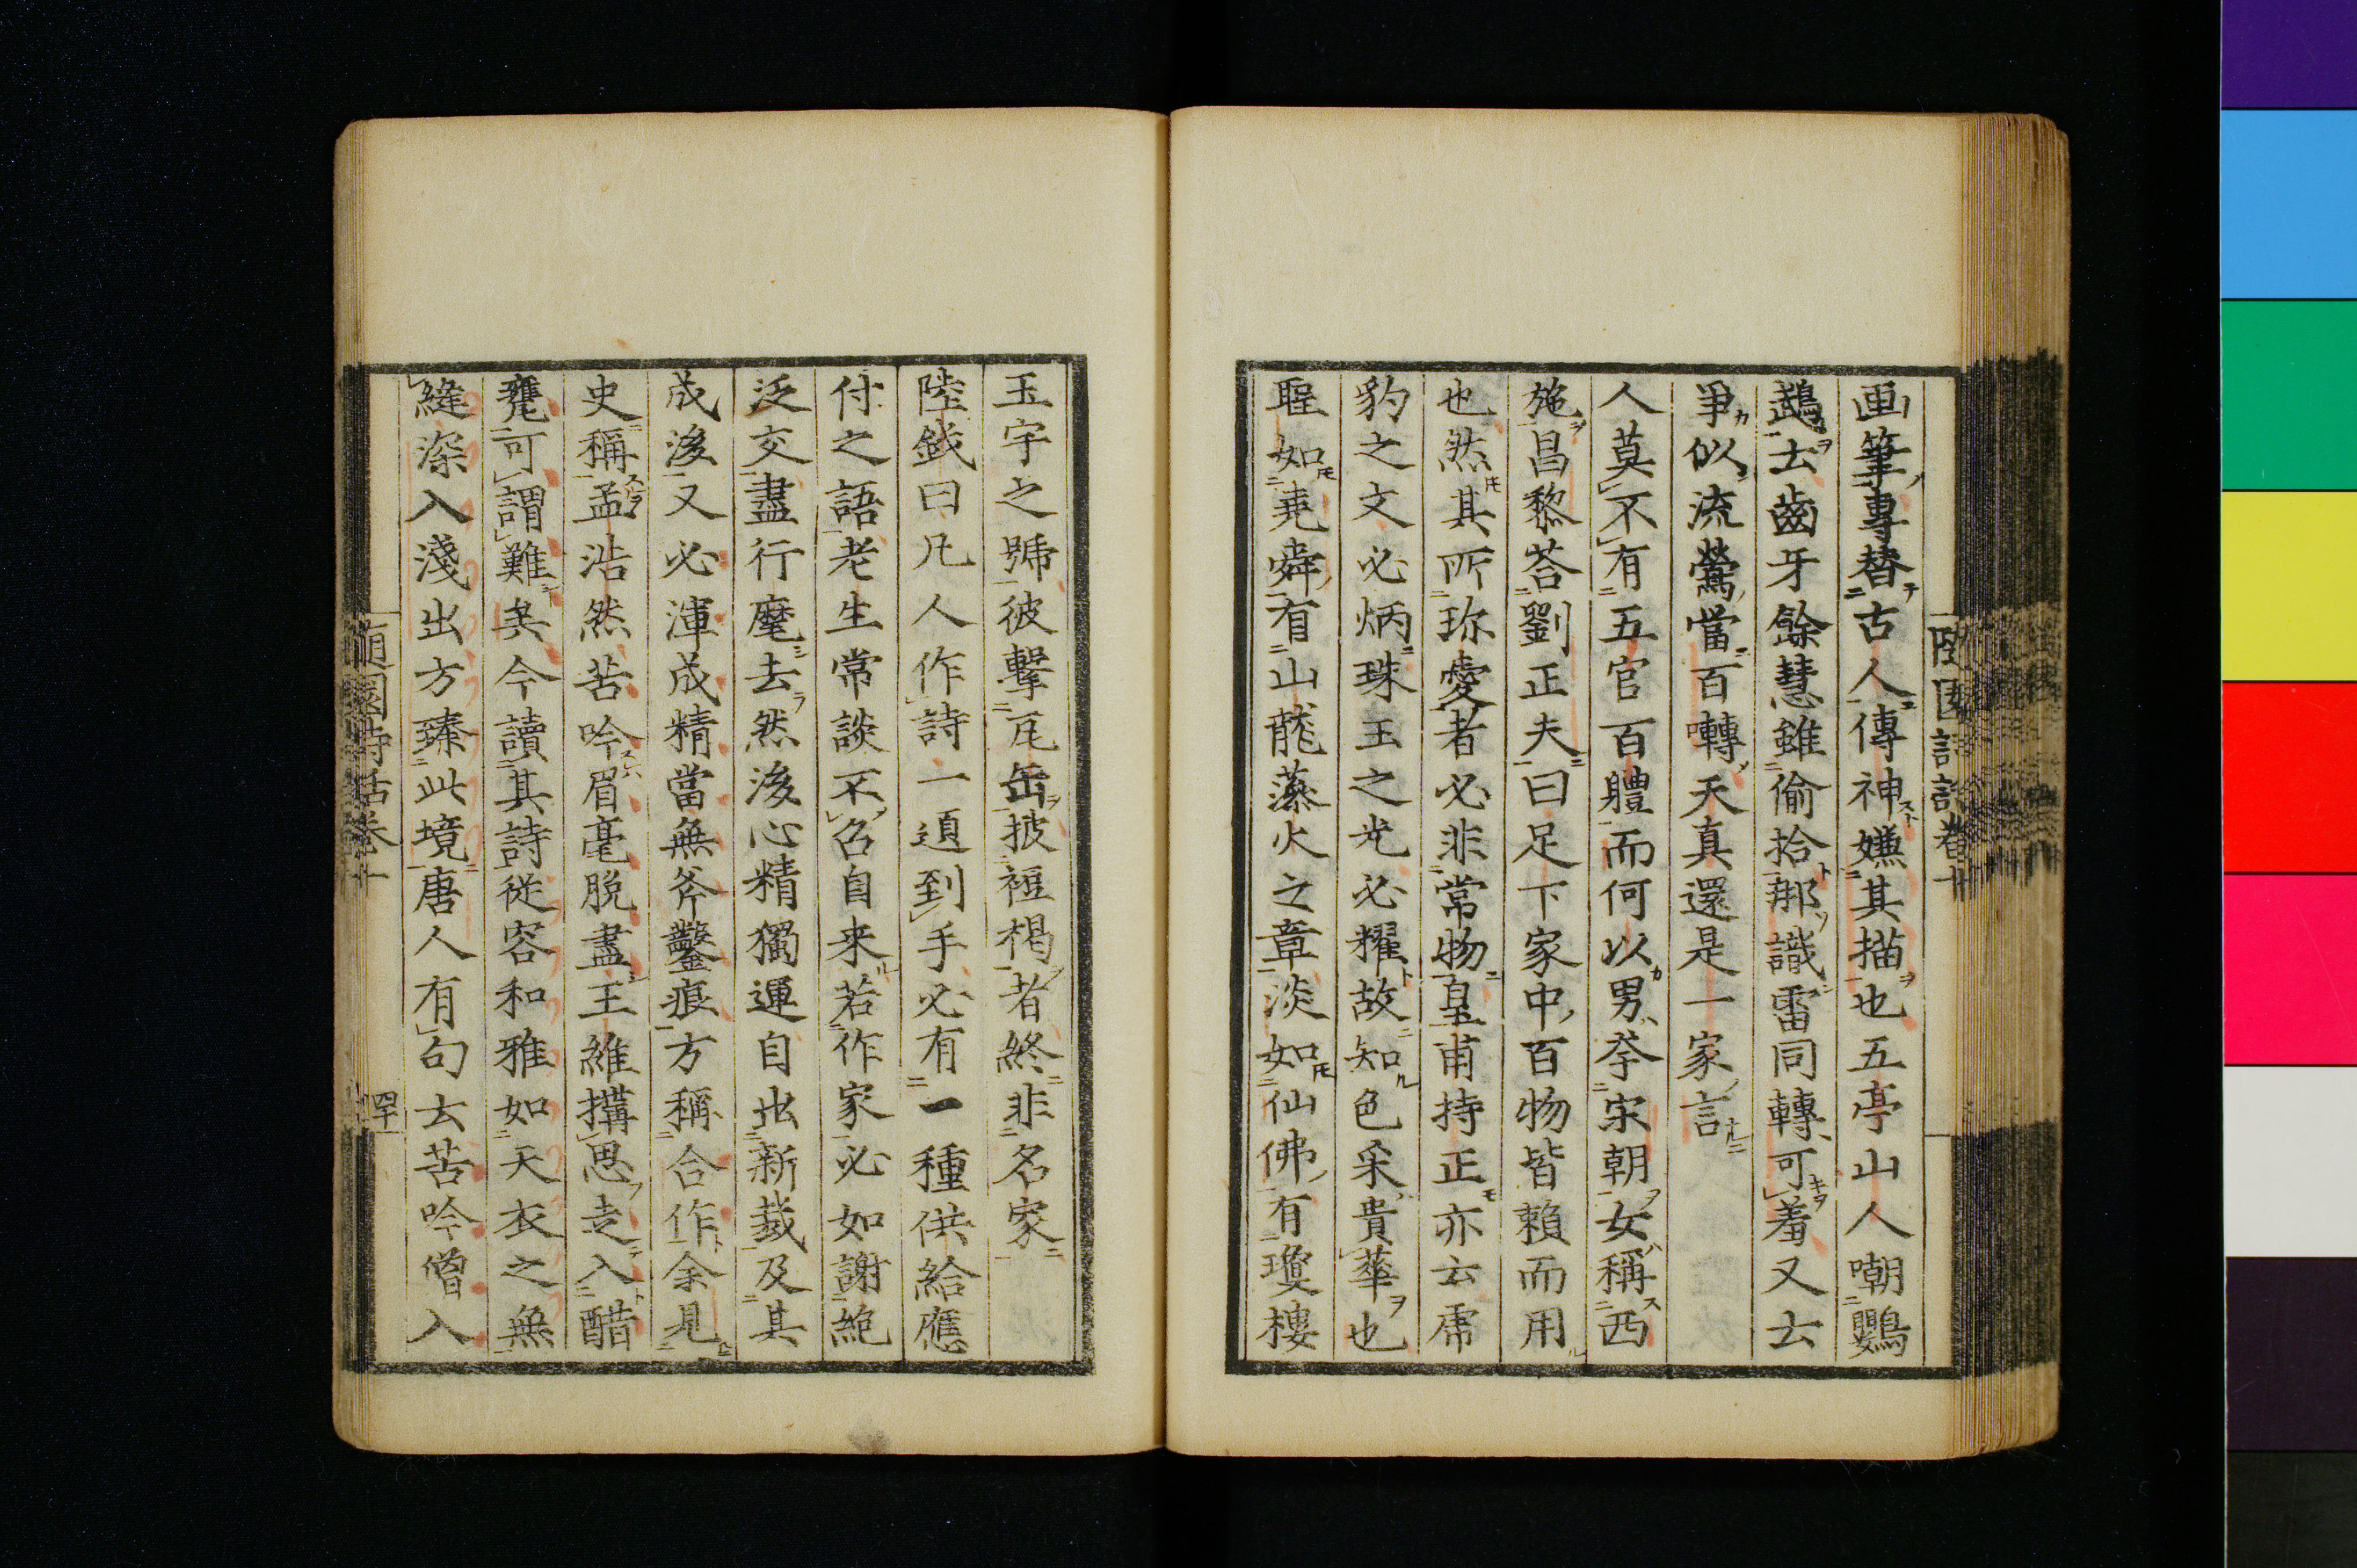 画筆專替古人傳神嫌其描也五亭山人嘲鸚
鵡云齒牙餘慧雖偷拾那識雷同轉可羞又云
爭似流鶯當百囀天真還是一家言
人莫不有五官百體而何以男夸宋朝女稱西
施昌黎荅劉正夫曰足下家中百物皆賴而用
也然其所珎愛者必非常物皇甫持正亦云虎
豹之文必炳珠玉之光必耀故知色采貴華也
聖如堯舜有山龍藻火之章淡如仙佛有瓊樓
玉宇之號彼擊瓦缶披裋褐者終非名家
陸鉽曰凡人作詩一題到手必有一種供給應
付之語老生常談不召自来若作家必如謝絶
泛交盡行麾去然後心精獨運自出新裁及其
成後又必渾成精當無斧鑿痕方稱合作余見
史稱孟浩然苦吟眉毫脫盡王維搆思走入醋
甕可謂難矣今讀其詩從容和雅如天衣之無
縫深入淺出方臻此境唐人有句云苦吟僧入
隨園詩話卷十
四十